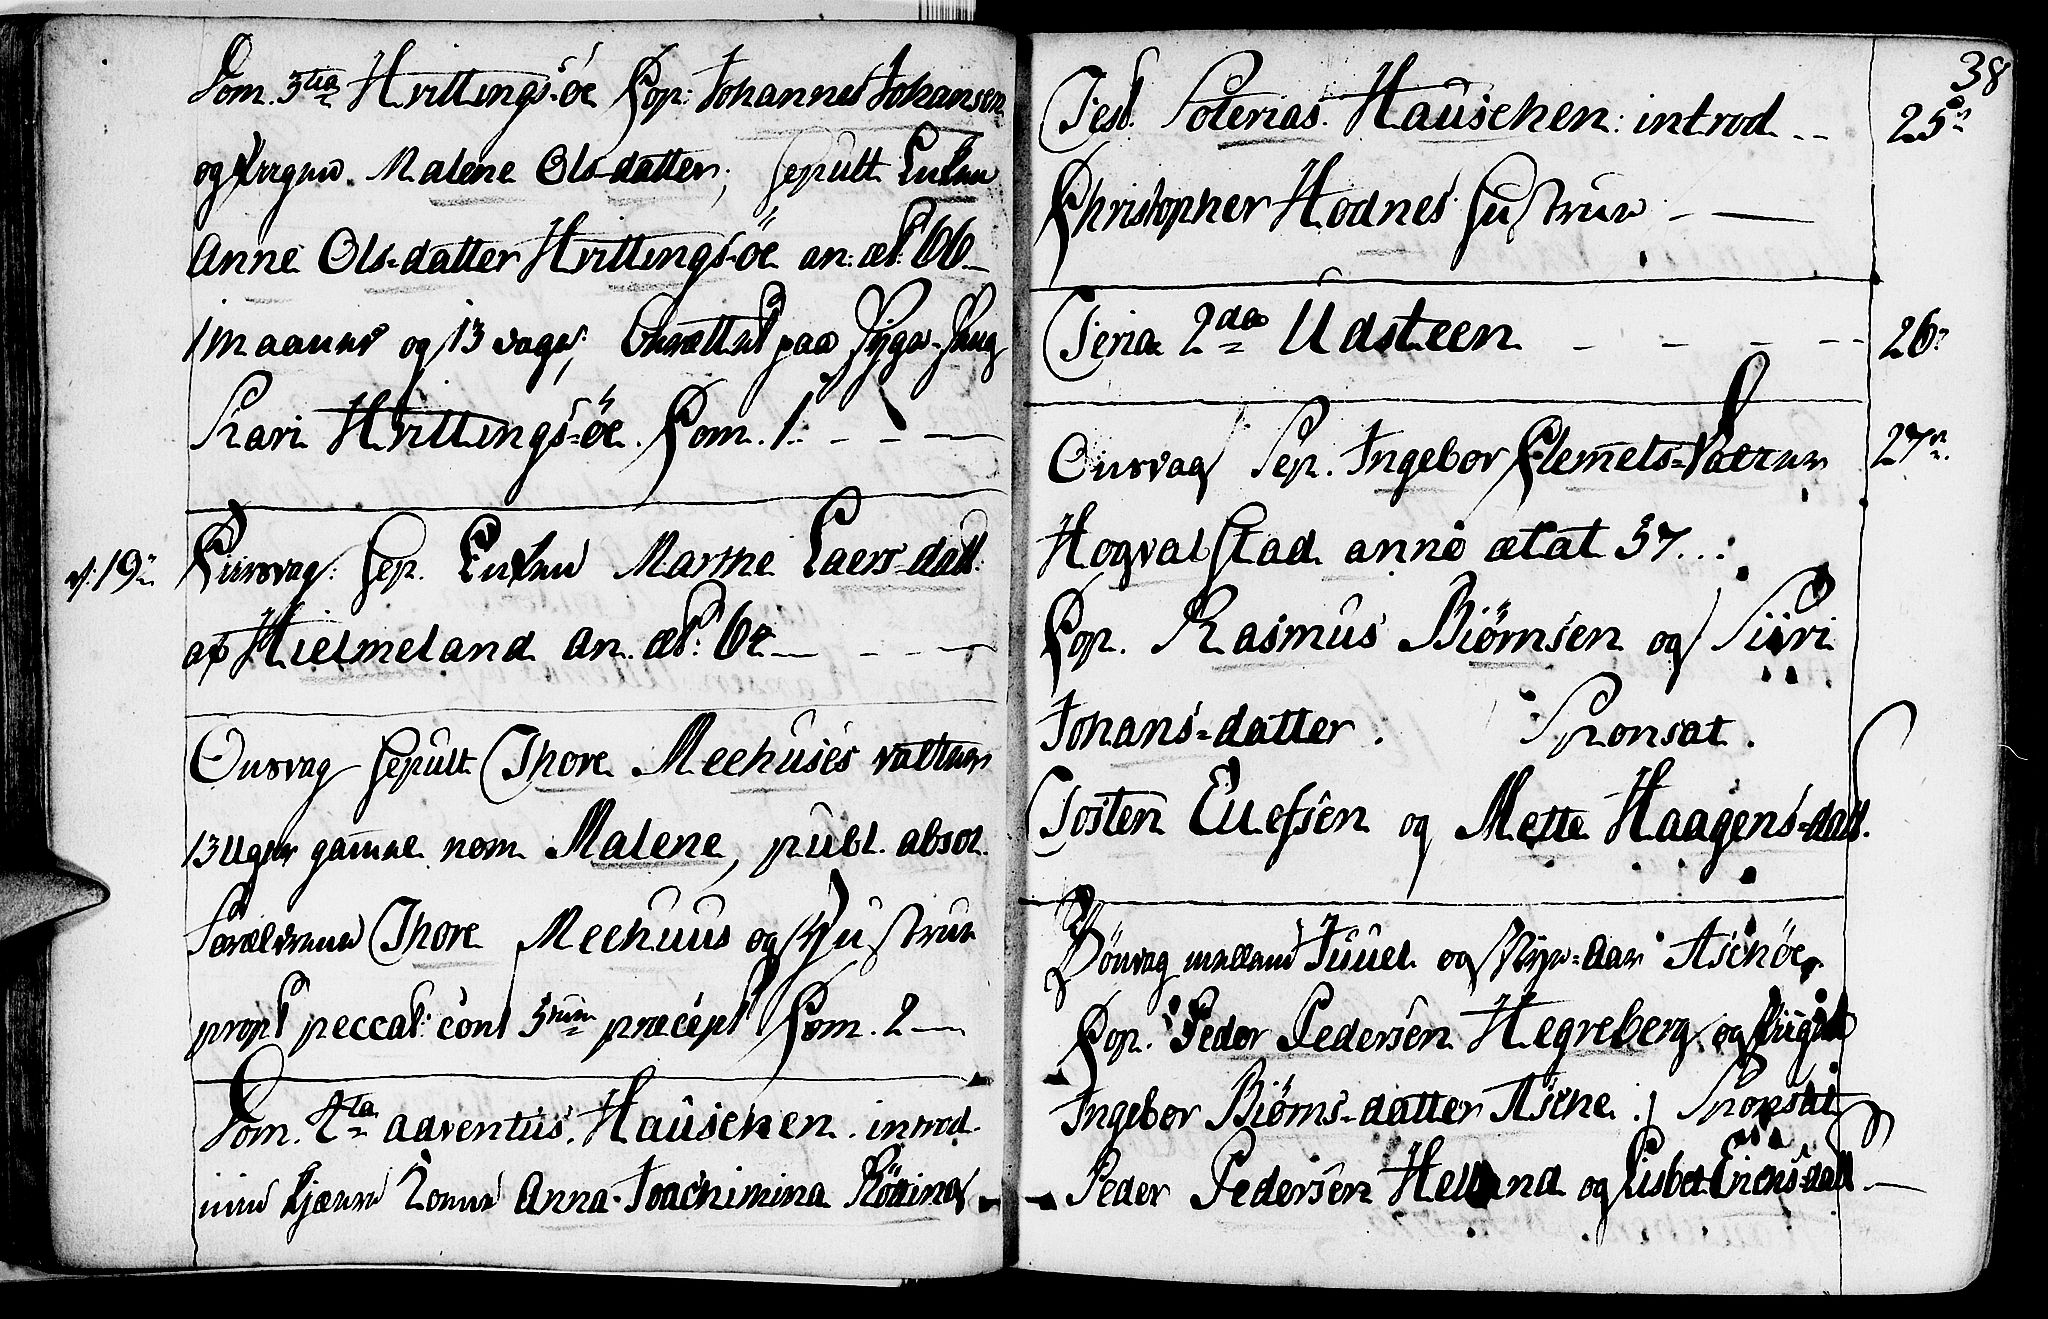 Dom. 3tia Hvittings-öe Cop: Johannes Johansen
og Pigen Malene Ols-datter; sepult Enken
Anne Ols-datter Hvittings-öe an: æt: 66
1 maaner og 13 dage; berættet paa Syge-Seng
Kari Hvittings-öe. Com. 1.
d. 19
Tiirsdag: Sep. Enken Marthe Laers-datt:
af Hielmeland an. æt: 64
Onsdag sepult Thore Meehuses datter
13 Uger gammel nom Malene, publ. absol.
Forældrene Thore Meehuus og Hustrue
propt peccat: cont 3tium præcept Com. 2
Dom. 4ta adventus. Hauschen. introd.
min kjære Kone Anna-Joachimina
38
Fest. Soterias. Hauschen: introd 25
Christopher Hodnes Hustrue
Feria 2da Udsteen 26
Onsdag Sep. Ingebor Clemets-Datter 27
Hognalstad anno ætat 37
Cop. Rasmus Biörnsen og Siiri
Johans-datter. Sponsat.
Tosten Ellefsen og Mette Haagens-datt.
Söndag mellem Juuel og Nye-Aar Aschöe
Cop. Peder Pedersen Hegreberg og Piigen
Ingebor Biörns-datter Asche. Sponsat
Peder Pedersen Helland og Lisbet Erichs-datt